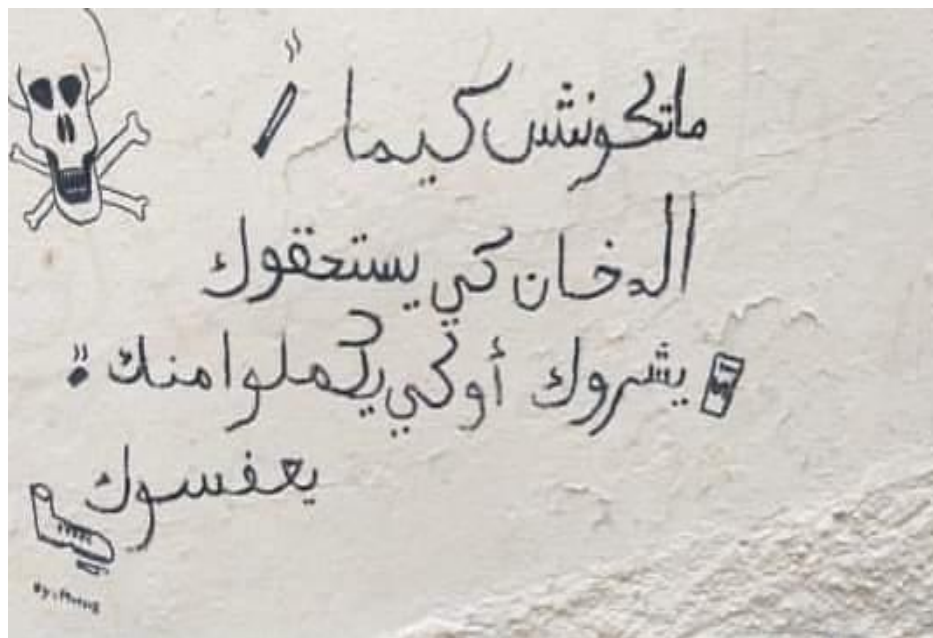 ماتكونش كيما
الدخان كي يستحقوك
يشروك أوكي يكملوا منك
يعفسوك